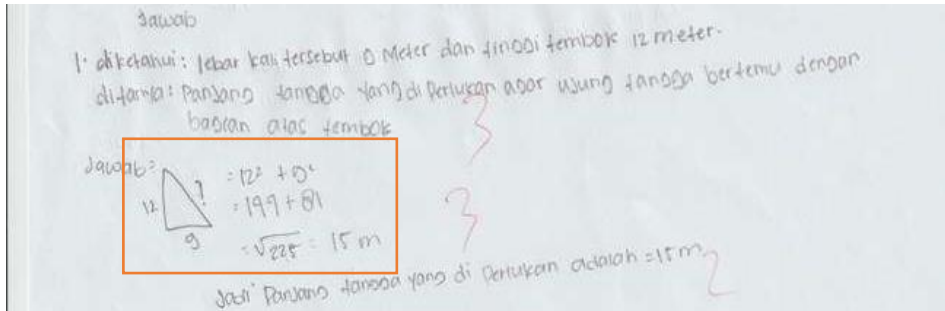 Jawab
1. diketahui : lebar kali tersebut 9 Meter dan tinggi tembok 12 meter.
ditanya : Panjang tangga yang di Perlukan agar ujung tangga bertemu dengan
bagian atas tembok
3
Jawab :
?
= 12² + 9²
12
= 144 + 81
3
9
= √225 = 15 m
Jadi Panjang tangga yang di Perlukan adalah = 15 m
2